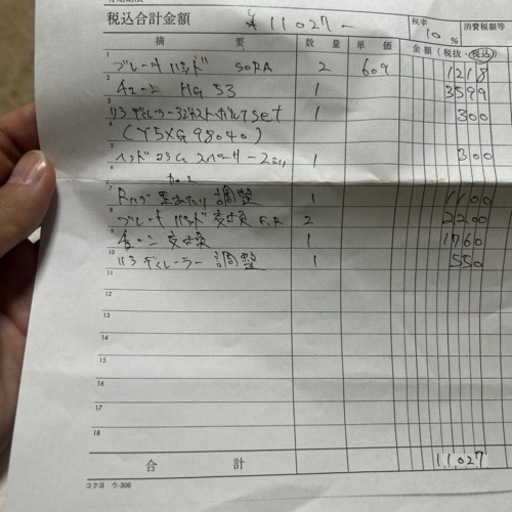 税込合計金額 ¥11027-
税率 10% 消費税額等
摘要 数量 単価 金額(税抜・税込)
1 ブレーキパッド SORA 2 609 1218
2 チェーン HG53 1 3599
3 リヤディレーラー アジャストボルト set 1 300
4 (Y5XG98040)
5 1 300
6
7 調整 1 1100
8 ブレーキパッド交換 F,R 2 2200
9 チェーン交換 1 1760
10 リヤディレーラー調整 1 550
11
12
13
14
15
16
17
18
合計 11027
コクヨ ウ-306